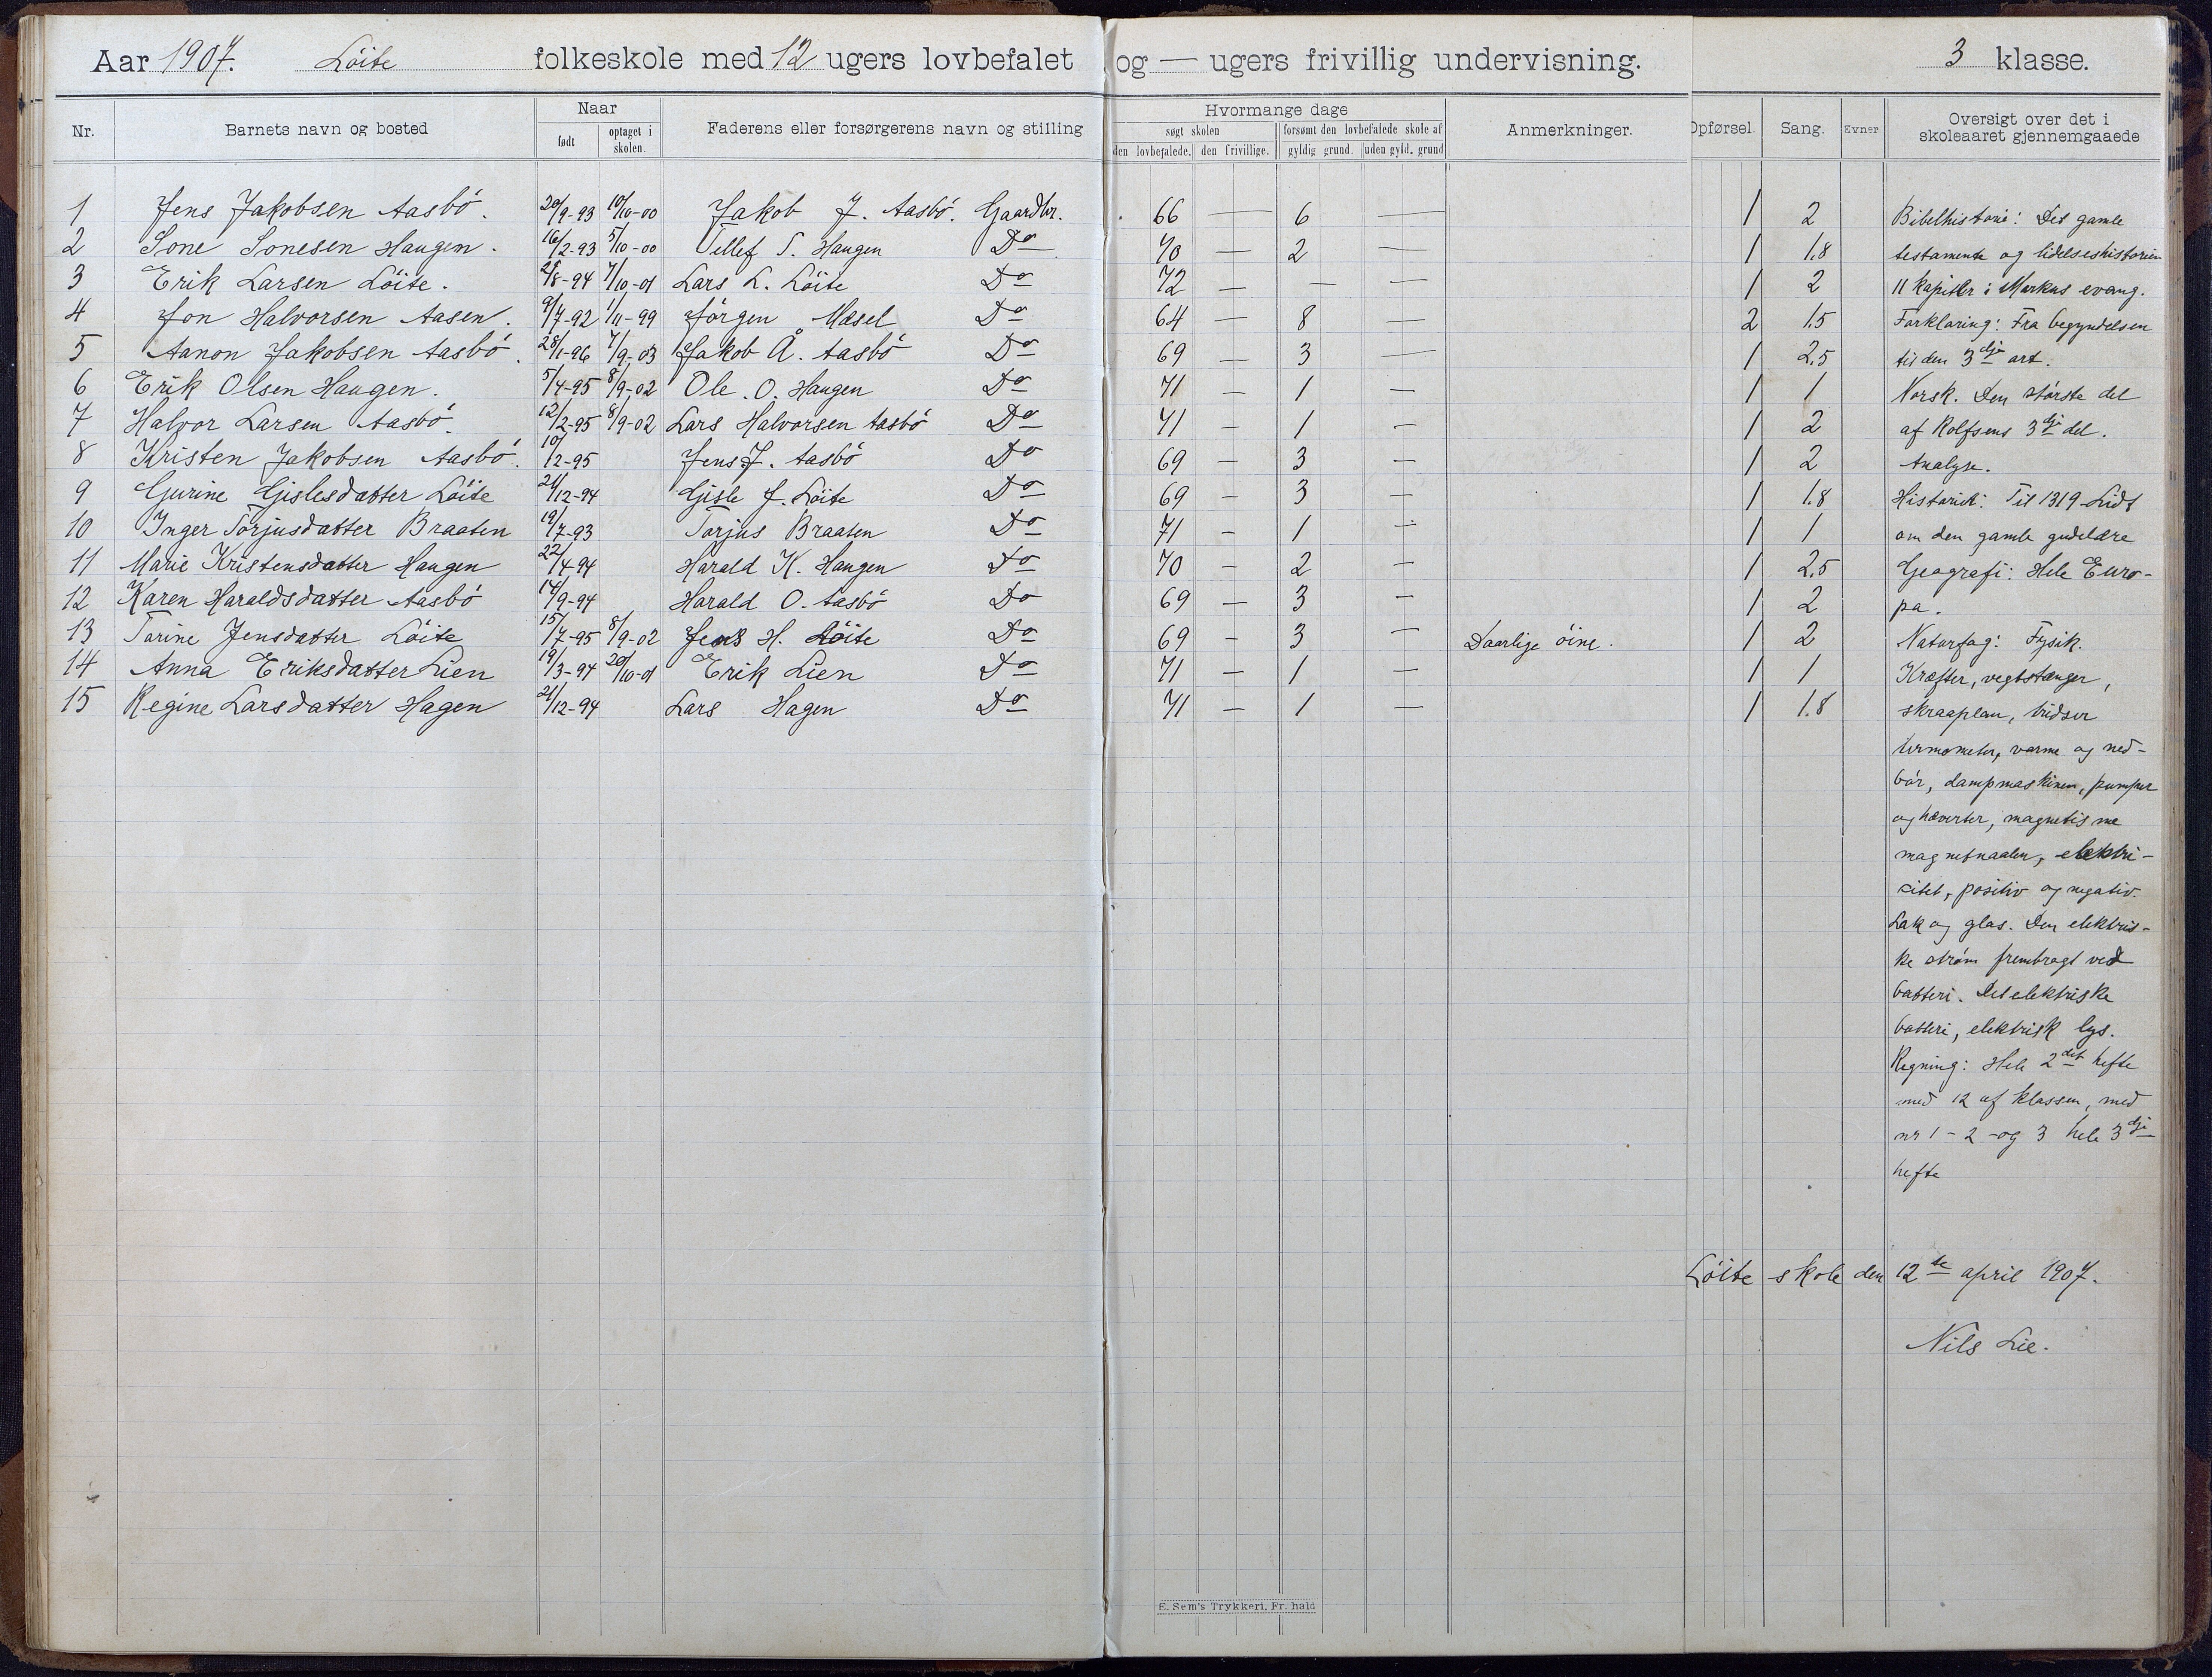 Aar 1907. Löite folkeskole med 12 ugers lovbefalet og — ugers frivillig undervisning. 3 klasse.
Nr. Barnets navn og bosted Naar født optaget i skolen. Faderens eller forsørgerens navn og stilling Hvormange dage søgt skolen den lovbefalede. den frivillige. forsømt den lovbefalede skole af gyldig grund. uden gyld. grund Anmerkninger. Opførsel. Sang. Evner Oversigt over det i skoleaaret gjennemgaaede
1 Jens Jakobsen Aasbö. 20/9-93 10/10-00 Jakob J. Aasbö. Gaardbr. 66 — 6 — 1 2 Bibelhistorie: Det gamle
2 Tone Tonesen Haugen. 16/2-93 5/10-00 Tellef T. Haugen Do 70 — 2 — 1 1.8 testamente og lidelseshistorien
3 Erik Larsen Löite. 2/8-94 7/10-01 Lars L. Löite Do 72 — — — 1 2 11 kapitler i Markus evang.
4 Jon Halvorsen Aasen. 9/7-92 1/11-99 Jörgen Mæsel Do 64 — 8 — 2 1.5 Forklaring: Fra begyndelsen
5 Aanon Jakobsen Aasbö. 28/1-96 7/9-03 Jakob Å. Aasbö Do 69 — 3 — 1 2.5 til den 3dje art.
6 Erik Olsen Haugen. 5/4-95 8/9-02 Ole. O. Haugen Do 71 — 1 — 1 1 Norsk. Den störste del
7 Halvor Larsen Aasbö. 12/2-95 8/9-02 Lars Halvorsen Aasbö Do 71 — 1 — 1 2 af Rolfsens 3dje del.
8 Kristen Jakobsen Aasbö. 10/2-95 Jens J. Aasbö Do 69 — 3 — 1 2 Analyse.
9 Gurine Gislesdatter Löite 21/12-94 Gisle J. Löite Do 69 — 3 — 1 1.8 Historie: Til 1319 Lidt
10 Inger Torjusdatter Braaten 19/7-93 Torjus Braaten Do 71 — 1 — 1 1 om den gamle gudelære
11 Marie Kristensdatter Haugen 22/4-94 Harald K. Haugen Do 70 — 2 — 1 2.5 Geografi: Hele Euro-
12 Karen Haraldsdatter Aasbö 14/9-94 Harald O. Aasbö Do 69 — 3 — 1 2 pa.
13 Tarine Jensdatter Löite 15/7-95 8/9-02 Jens H. Löite Do 69 — 3 — Daarlige öine. 1 2 Naturfag: Fysik.
14 Anna Eriksdatter Lien 19/3-94 20/10-01 Erik Lien Do 71 — 1 — 1 1 Kræfter, vegtstænger,
15 Regine Larsdatter Hagen 21/12-94 Lars Hagen Do 71 — 1 — 1 1.8 skraaplan, tridser
termometer, varme og ned-
bör, dampmaskinen, pumper
og hæverter, magnetisme
magnetnaalen, elektri-
citet, positiv og negativ.
Lak og glas. Den elektris-
ke ström frembragt ved
batteri. Det elektriske
batteri, elektrisk lys.
Regning: Hele 2det hefte
med 12 af klassen, med
nr 1 - 2 - og 3 hele 3dje
hefte
Löite skole den 12te april 1907.
Nils Lie.
E. Sem's Trykkeri, Fr. hald